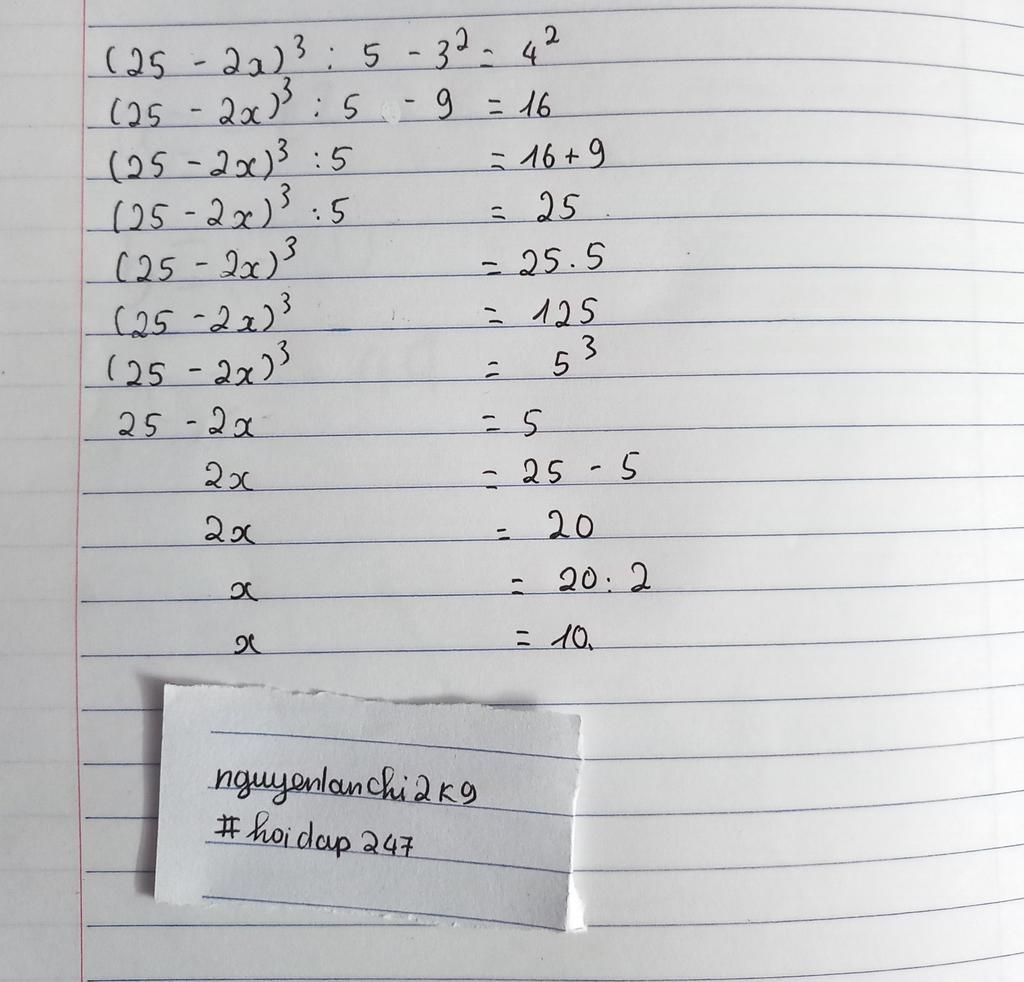 (25 - 2x)³ : 5 - 3² = 4²
(25 - 2x)³ : 5 - 9 = 16
(25 - 2x)³ : 5 = 16 + 9
(25 - 2x)³ : 5 = 25
(25 - 2x)³ = 25.5
(25 - 2x)³ = 125
(25 - 2x)³ = 5³
25 - 2x = 5
2x = 25 - 5
2x = 20
x = 20 : 2
x = 10.
nguyenlanchi2k9
#hoidap247